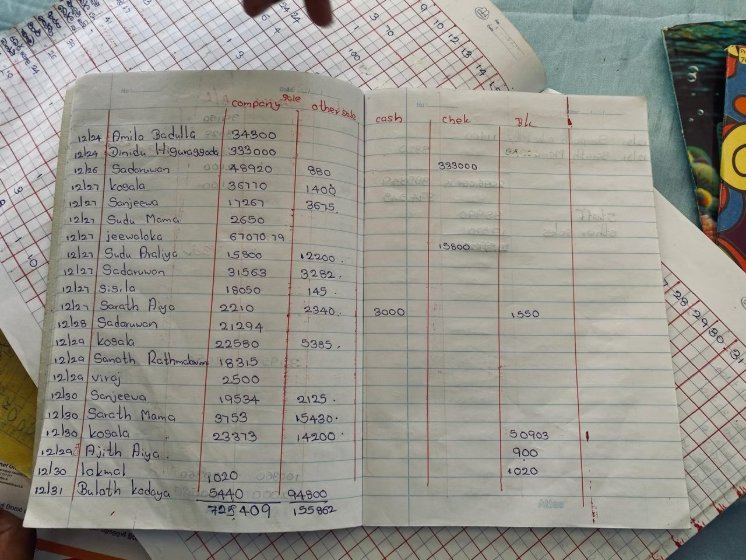 company sale other sale cash chek
12/24 Amila Badulla 34300
12/24 Dinidu Higuraggoda 333000
12/26 Sadaruwan 48920 880 333000
12/27 kosala 36770 1400
12/27 Sanjeewa 17267 3675
12/27 Sudu Mama 2650
12/27 jeewaloka 67070.79
12/27 Sudu Araliya 15800 12200 15800
12/27 Sadaruwan 31563 3282
12/27 Sisila 18050 145
12/27 Sarath Aiya 2210 2340 3000 1550
12/28 Sadaruwan 21294
12/29 kosala 22580 5385
12/29 Sanath 18315
12/29 viraj 2500
12/30 Sanjeewa 19534 2125
12/30 Sarath Mama 3753 15430
12/30 kosala 23373 14200 50903
12/29 Ajith Aiya 900
12/30 lakmal 1020 1020
12/31 Bulath kadaya 5440 94800
725409 155862